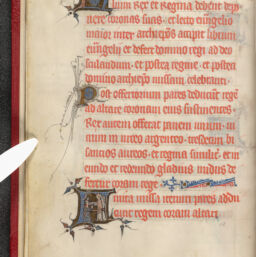 num Rex et Regina debent depo
nere coronas suas. et lecto euangelio
maior inter archiepos accipit librum
euangelij et defert domino regi ad deo
sculandum. et postea regine. et postea
domino archiepo missam celebranti.
Post offertorium pares deducunt rege
ad altare coronam eius sustinentes.
Rex autem offerat panem unum. ui
num in urceo argenteo. tresdecim bi
santios aureos. et regina similiter. et in
eundo et redeundo gladius nudus de
fertur coram rege.
Finita missa iterum pares addu
cunt regem coram altari